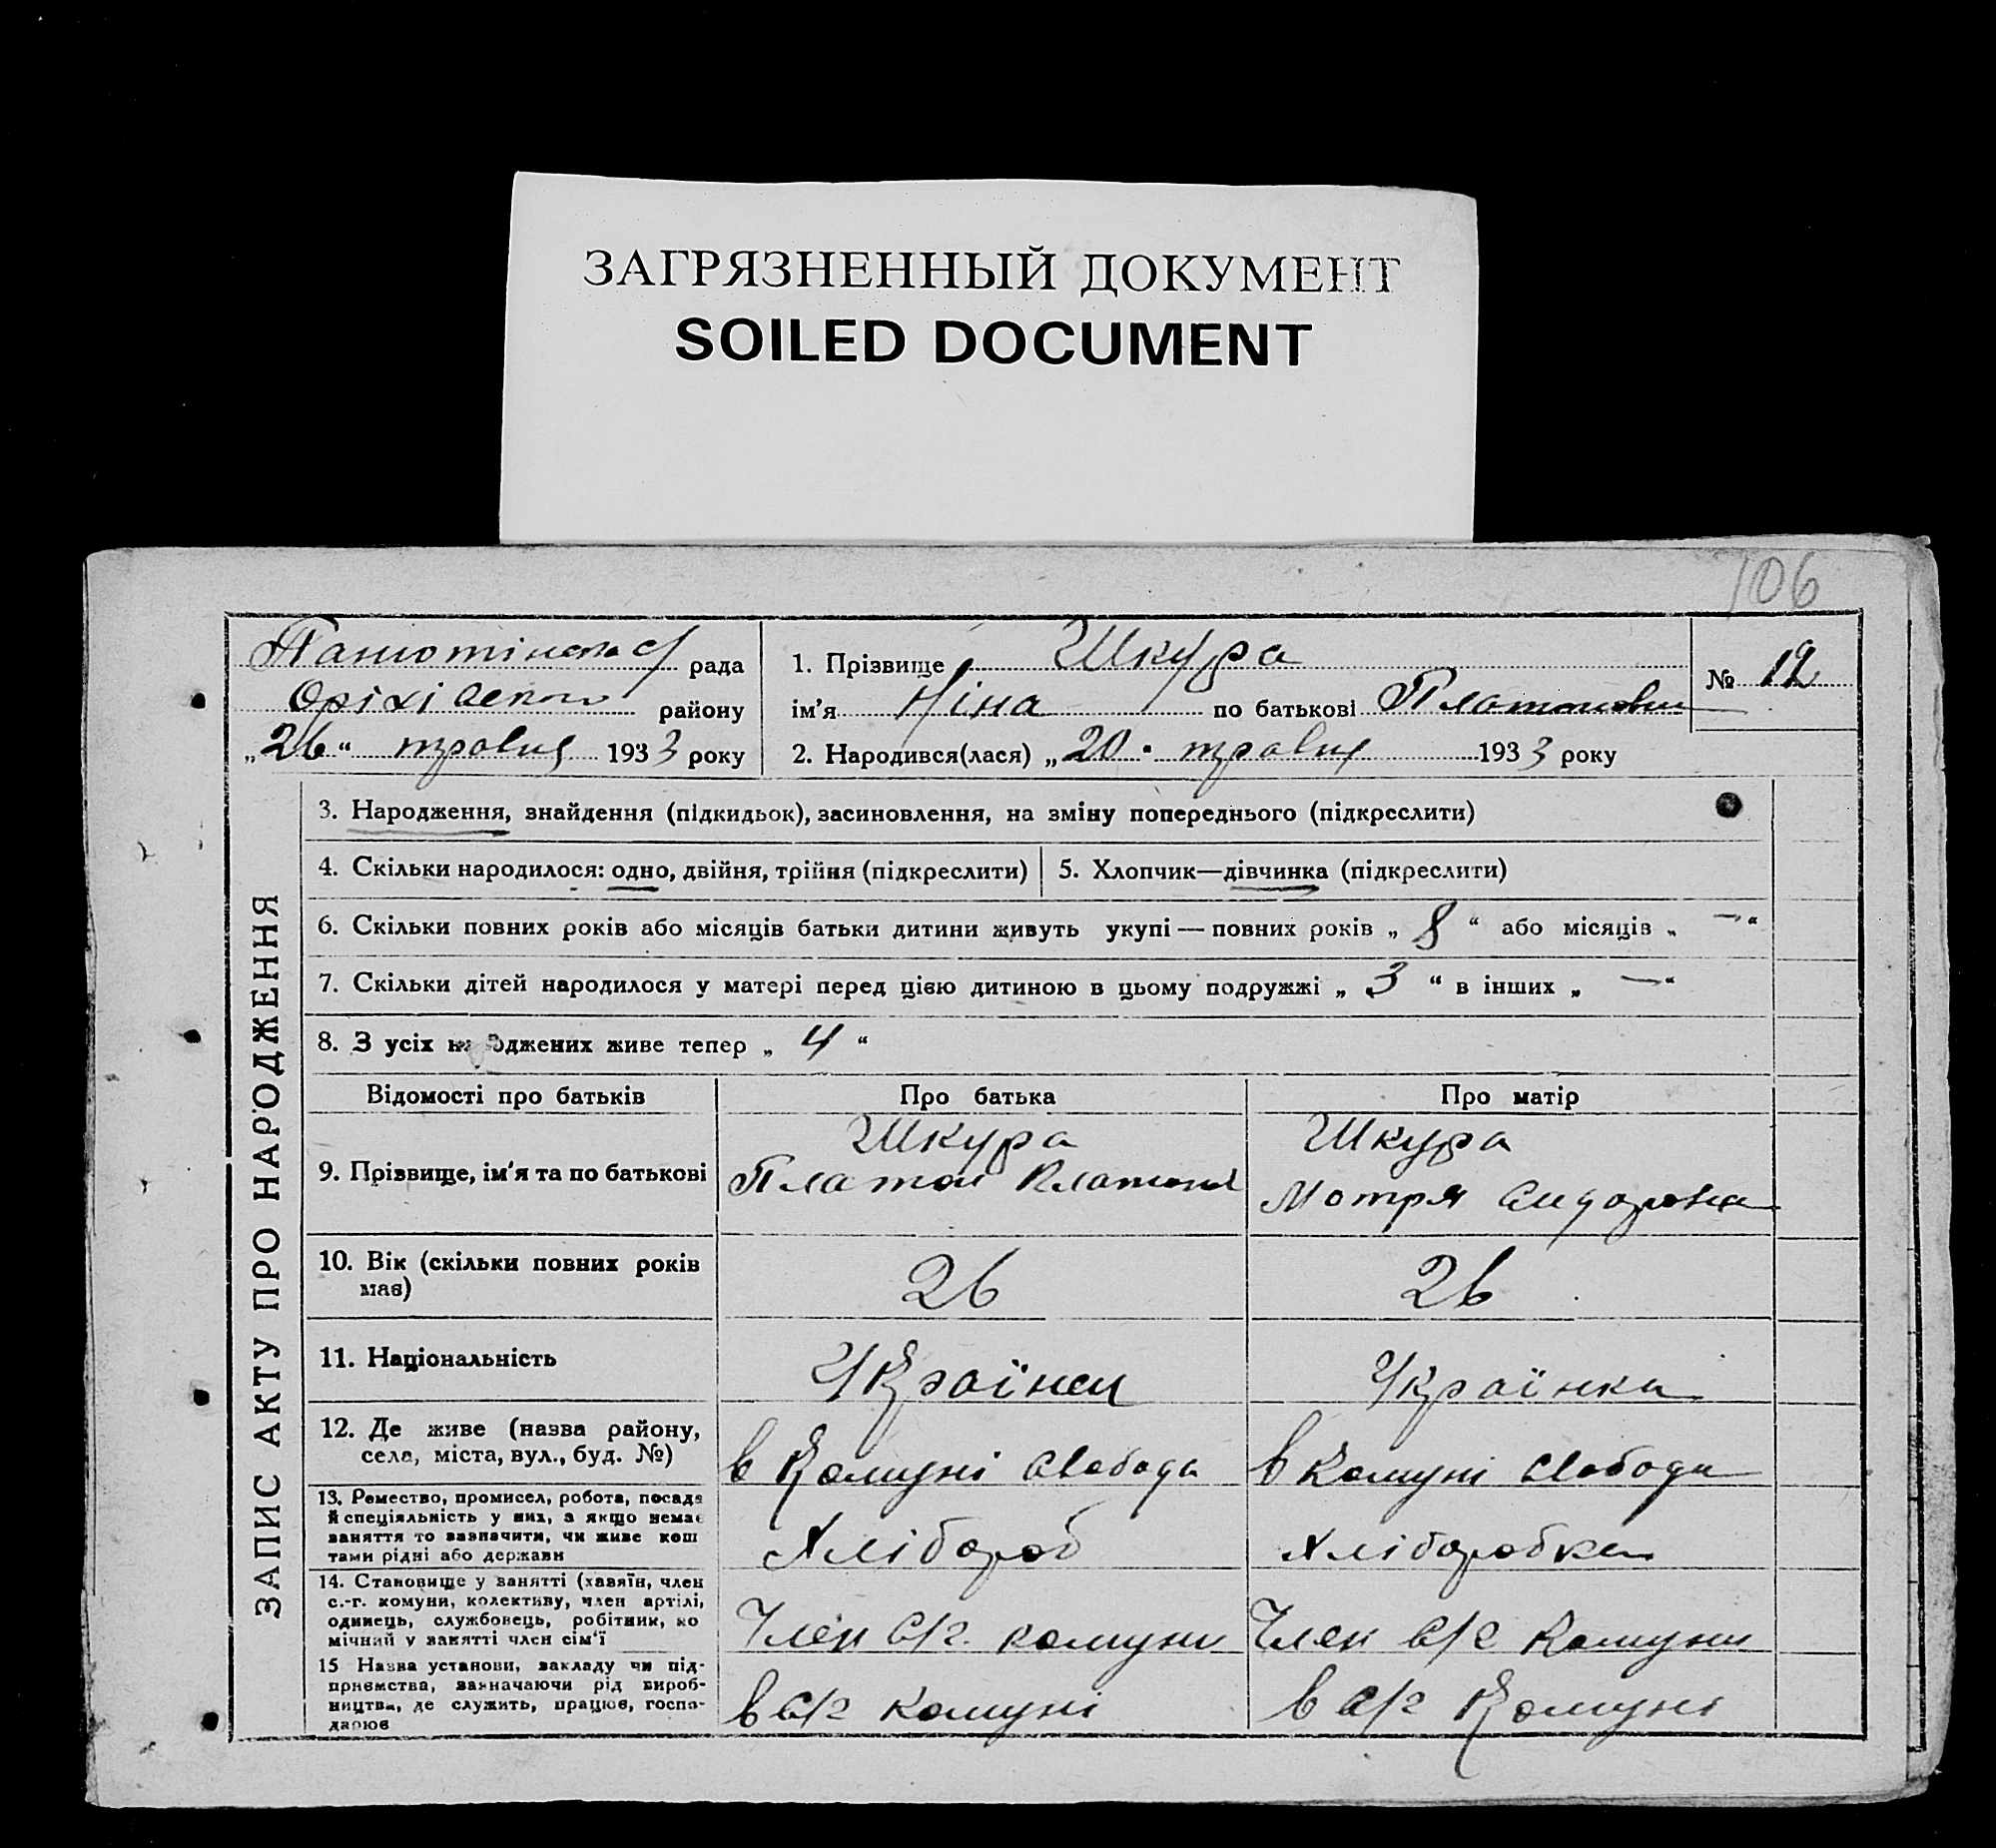 ЗАГРЯЗНЕННЫЙ ДОКУМЕНТ
SOILED DOCUMENT
106
рада
Оріхівського району
„26“ травня 1933 року
1. Прізвище Шкура
ім'я Ніна по батькові Платоновн
№ 12
2. Народився(лася) „20“ травня 1933 року
ЗАПИС АКТУ ПРО НАРОДЖЕННЯ
3. Народження, знайдення (підкидьок), засиновлення, на зміну попереднього (підкреслити)
4. Скільки народилося: одно, двійня, трійня (підкреслити)
5. Хлопчик—дівчинка (підкреслити)
6. Скільки повних років або місяців батьки дитини живуть укупі — повних років „ 8 “ або місяців „ — “
7. Скільки дітей народилося у матері перед цією дитиною в цьому подружжі „ 3 “ в інших „ — “
8. З усіх народжених живе тепер „ 4 “
Відомості про батьків
Про батька
Про матір
9. Прізвище, ім'я та по батькові
Шкура
Платон Платонов
Шкура
Мотря Сидоровна
10. Вік (скільки повних років
має)
26
26
11. Національність
Українец
Українка
12. Де живе (назва району,
села, міста, вул., буд. №)
в Комуні Свобода
в Комуні Свобода
13. Ремество, промисел, робота, посада
й спеціяльність у них, а якщо немає
заняття то зазначити, чи живе кош
тами рідні або держави
Хлібороб
Хлібборобка
14. Становище у занятті (хазяїн, член
с.-г. комуни, колективу, член артілі,
одинець, службовець, робітник, по
мічний у занятті член сім'ї
Член С/г. комуни
Член С/г Комуни
15 Назва установи, закладу чи під-
приємства, зазначаючи рід вироб-
ництва, де служить, працює, госпо-
дарює
в С/г Комуні
в С/г Комуні